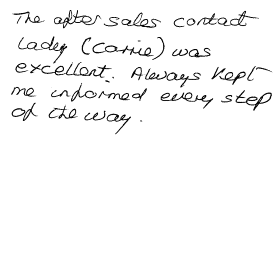 The after sales contact
Lady (Carrie) was
excellent. Always kept
me informed every step
of the way.